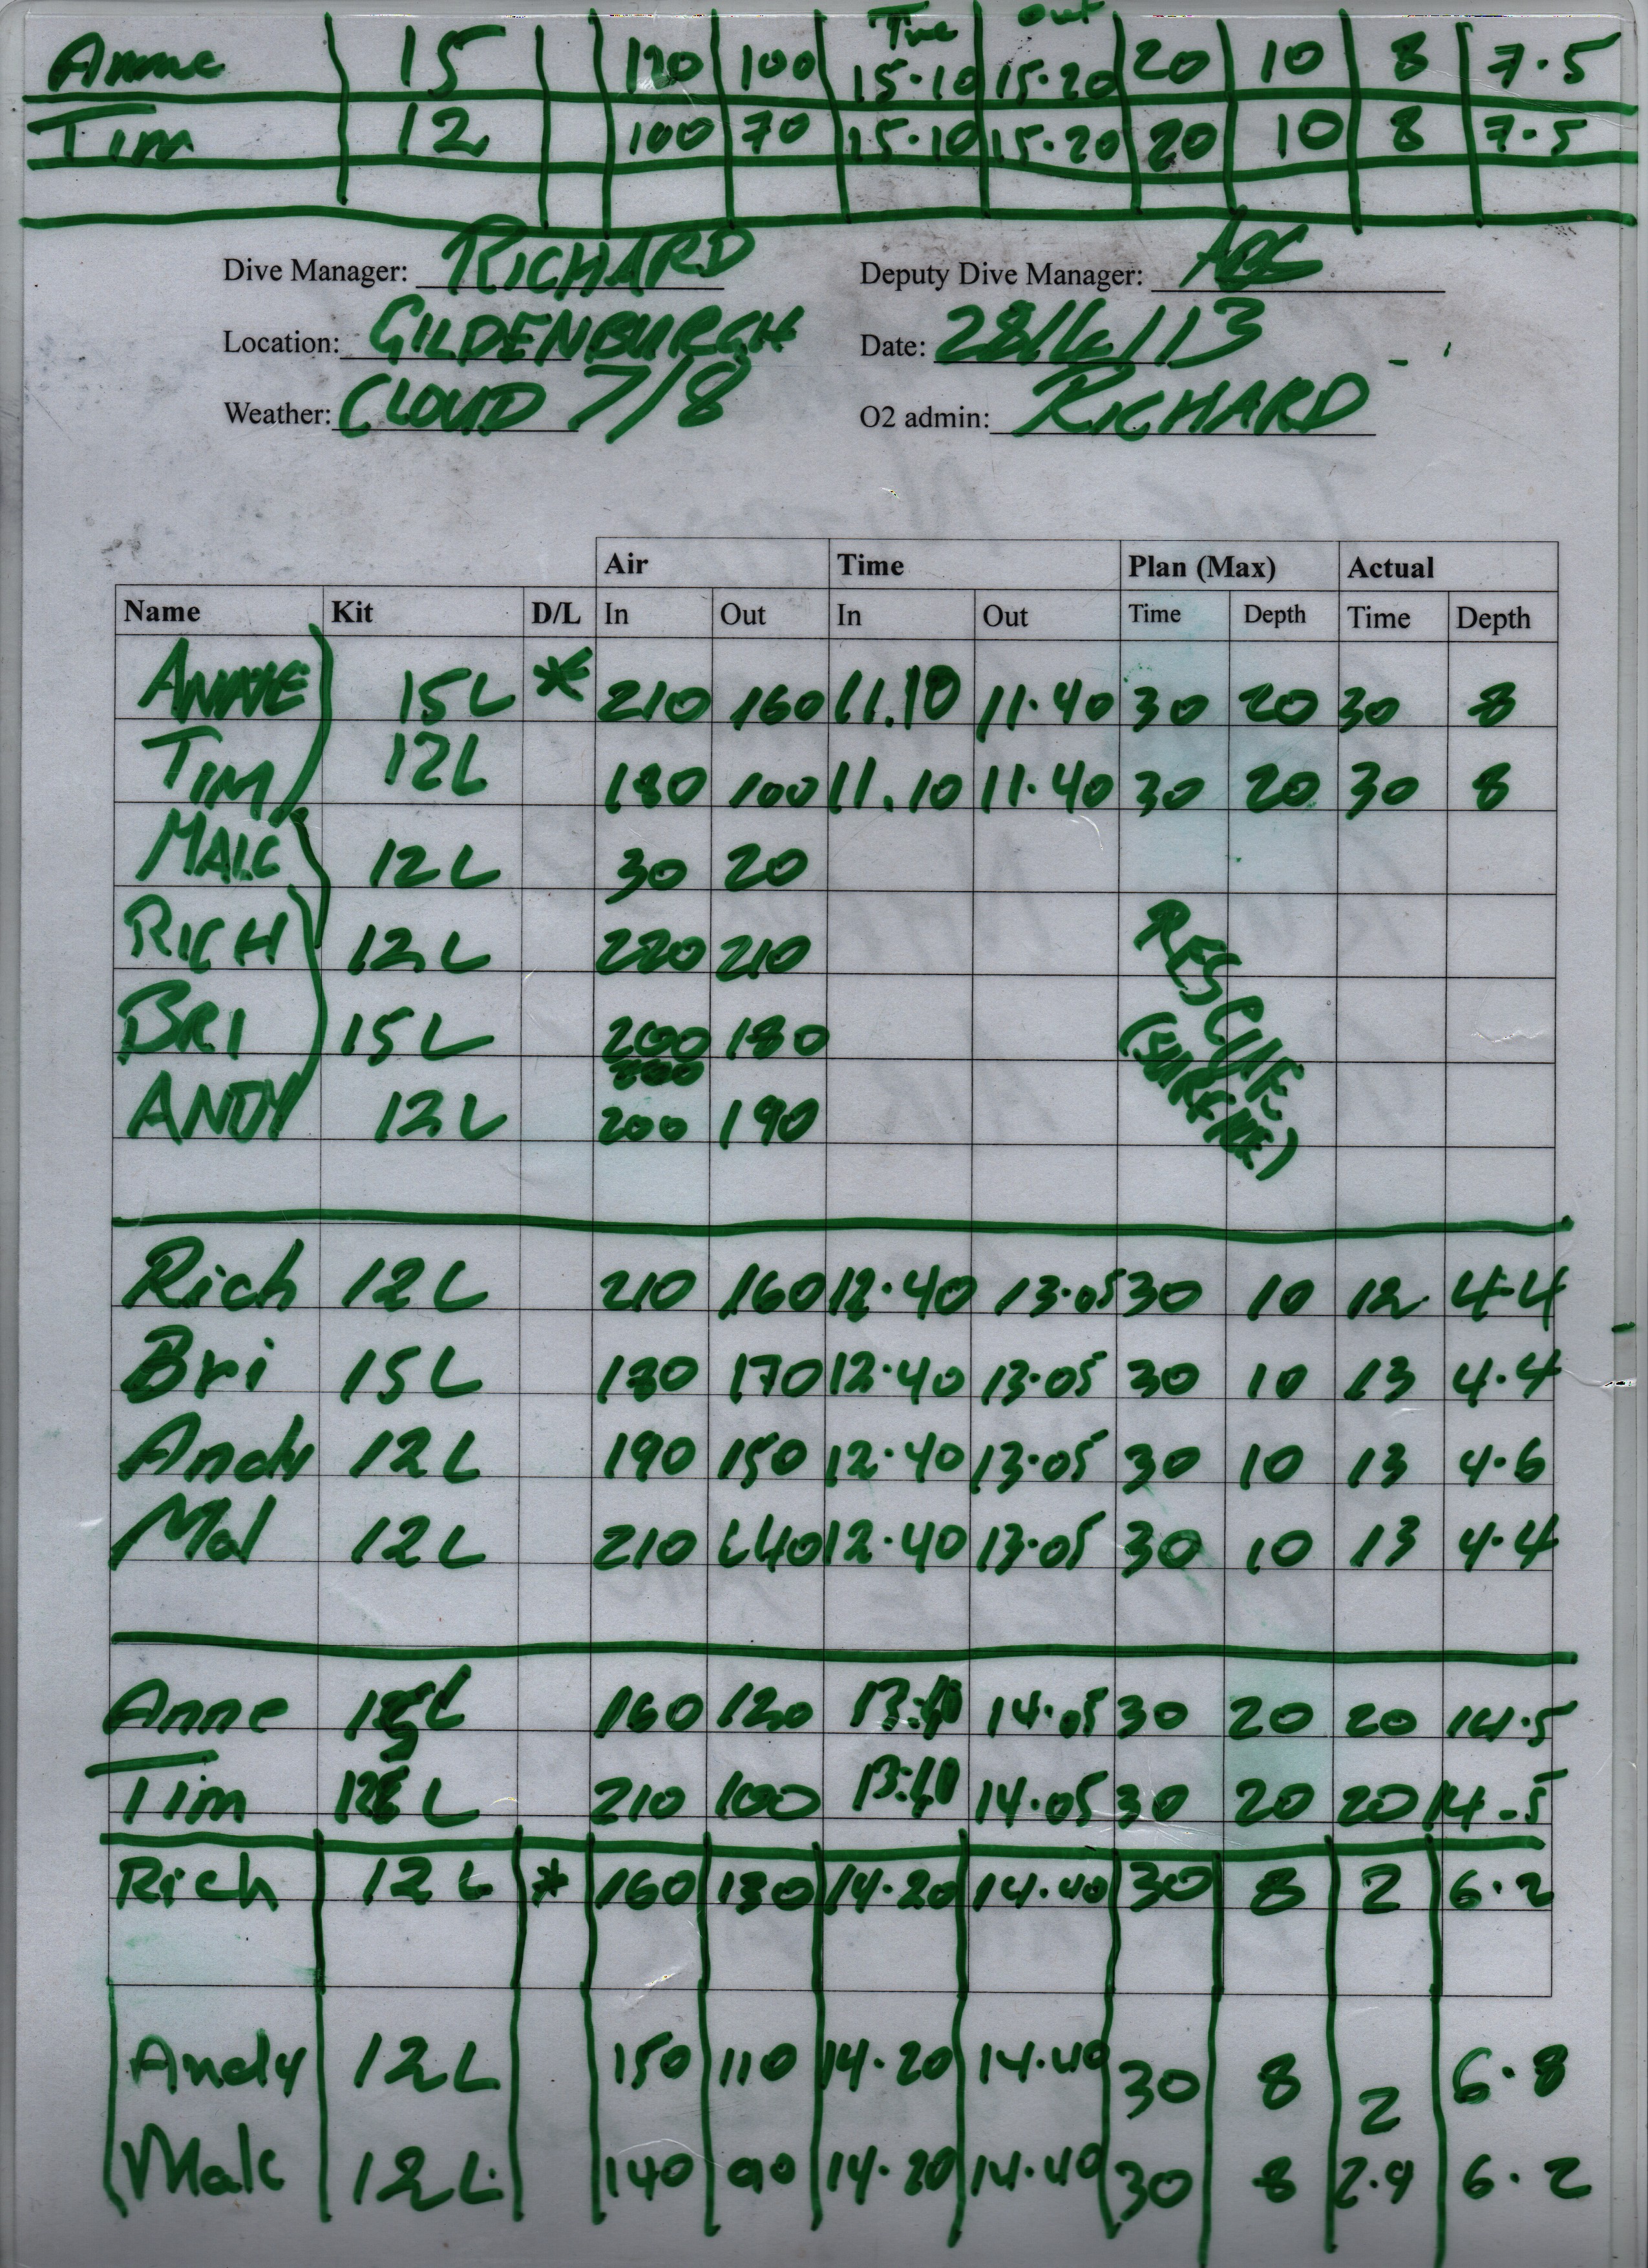 Time Out
Anne 15 120 100 15.10 15.20 20 10 8 7.5
Tim 12 100 70 15.10 15.20 20 10 8 7.5
Dive Manager: RICHARD Deputy Dive Manager:
Location: GILDENBURGH Date: 28/4/13
Weather: CLOUD 7/8 O2 admin: RICHARD
Air Time Plan (Max) Actual
Name Kit D/L In Out In Out Time Depth Time Depth
ANNE 15L * 210 160 11.10 11.40 30 20 30 8
TIM 12L 180 100 11.10 11.40 30 20 30 8
MALC 12L 30 20
RICH 12L 220 210
BRI 15L 200 180
ANDY 12L 200 190
RESCUE
(SURFACE)
Rich 12L 210 160 12.40 13.05 30 10 12 4.4
Bri 15L 180 170 12.40 13.05 30 10 13 4.4
Andy 12L 190 150 12.40 13.05 30 10 13 4.6
Mal 12L 210 140 12.40 13.05 30 10 13 4.4
Anne 15L 160 120 14.05 30 20 20 14.5
Tim 210 100 14.05 30 20 20 14.5
Rich 12L * 160 130 14.20 14.40 30 8 2 6.2
Andy 12L 150 110 14.20 14.40 30 8 2 6.8
Malc 12L 140 90 14.20 14.40 30 8 2.9 6.2